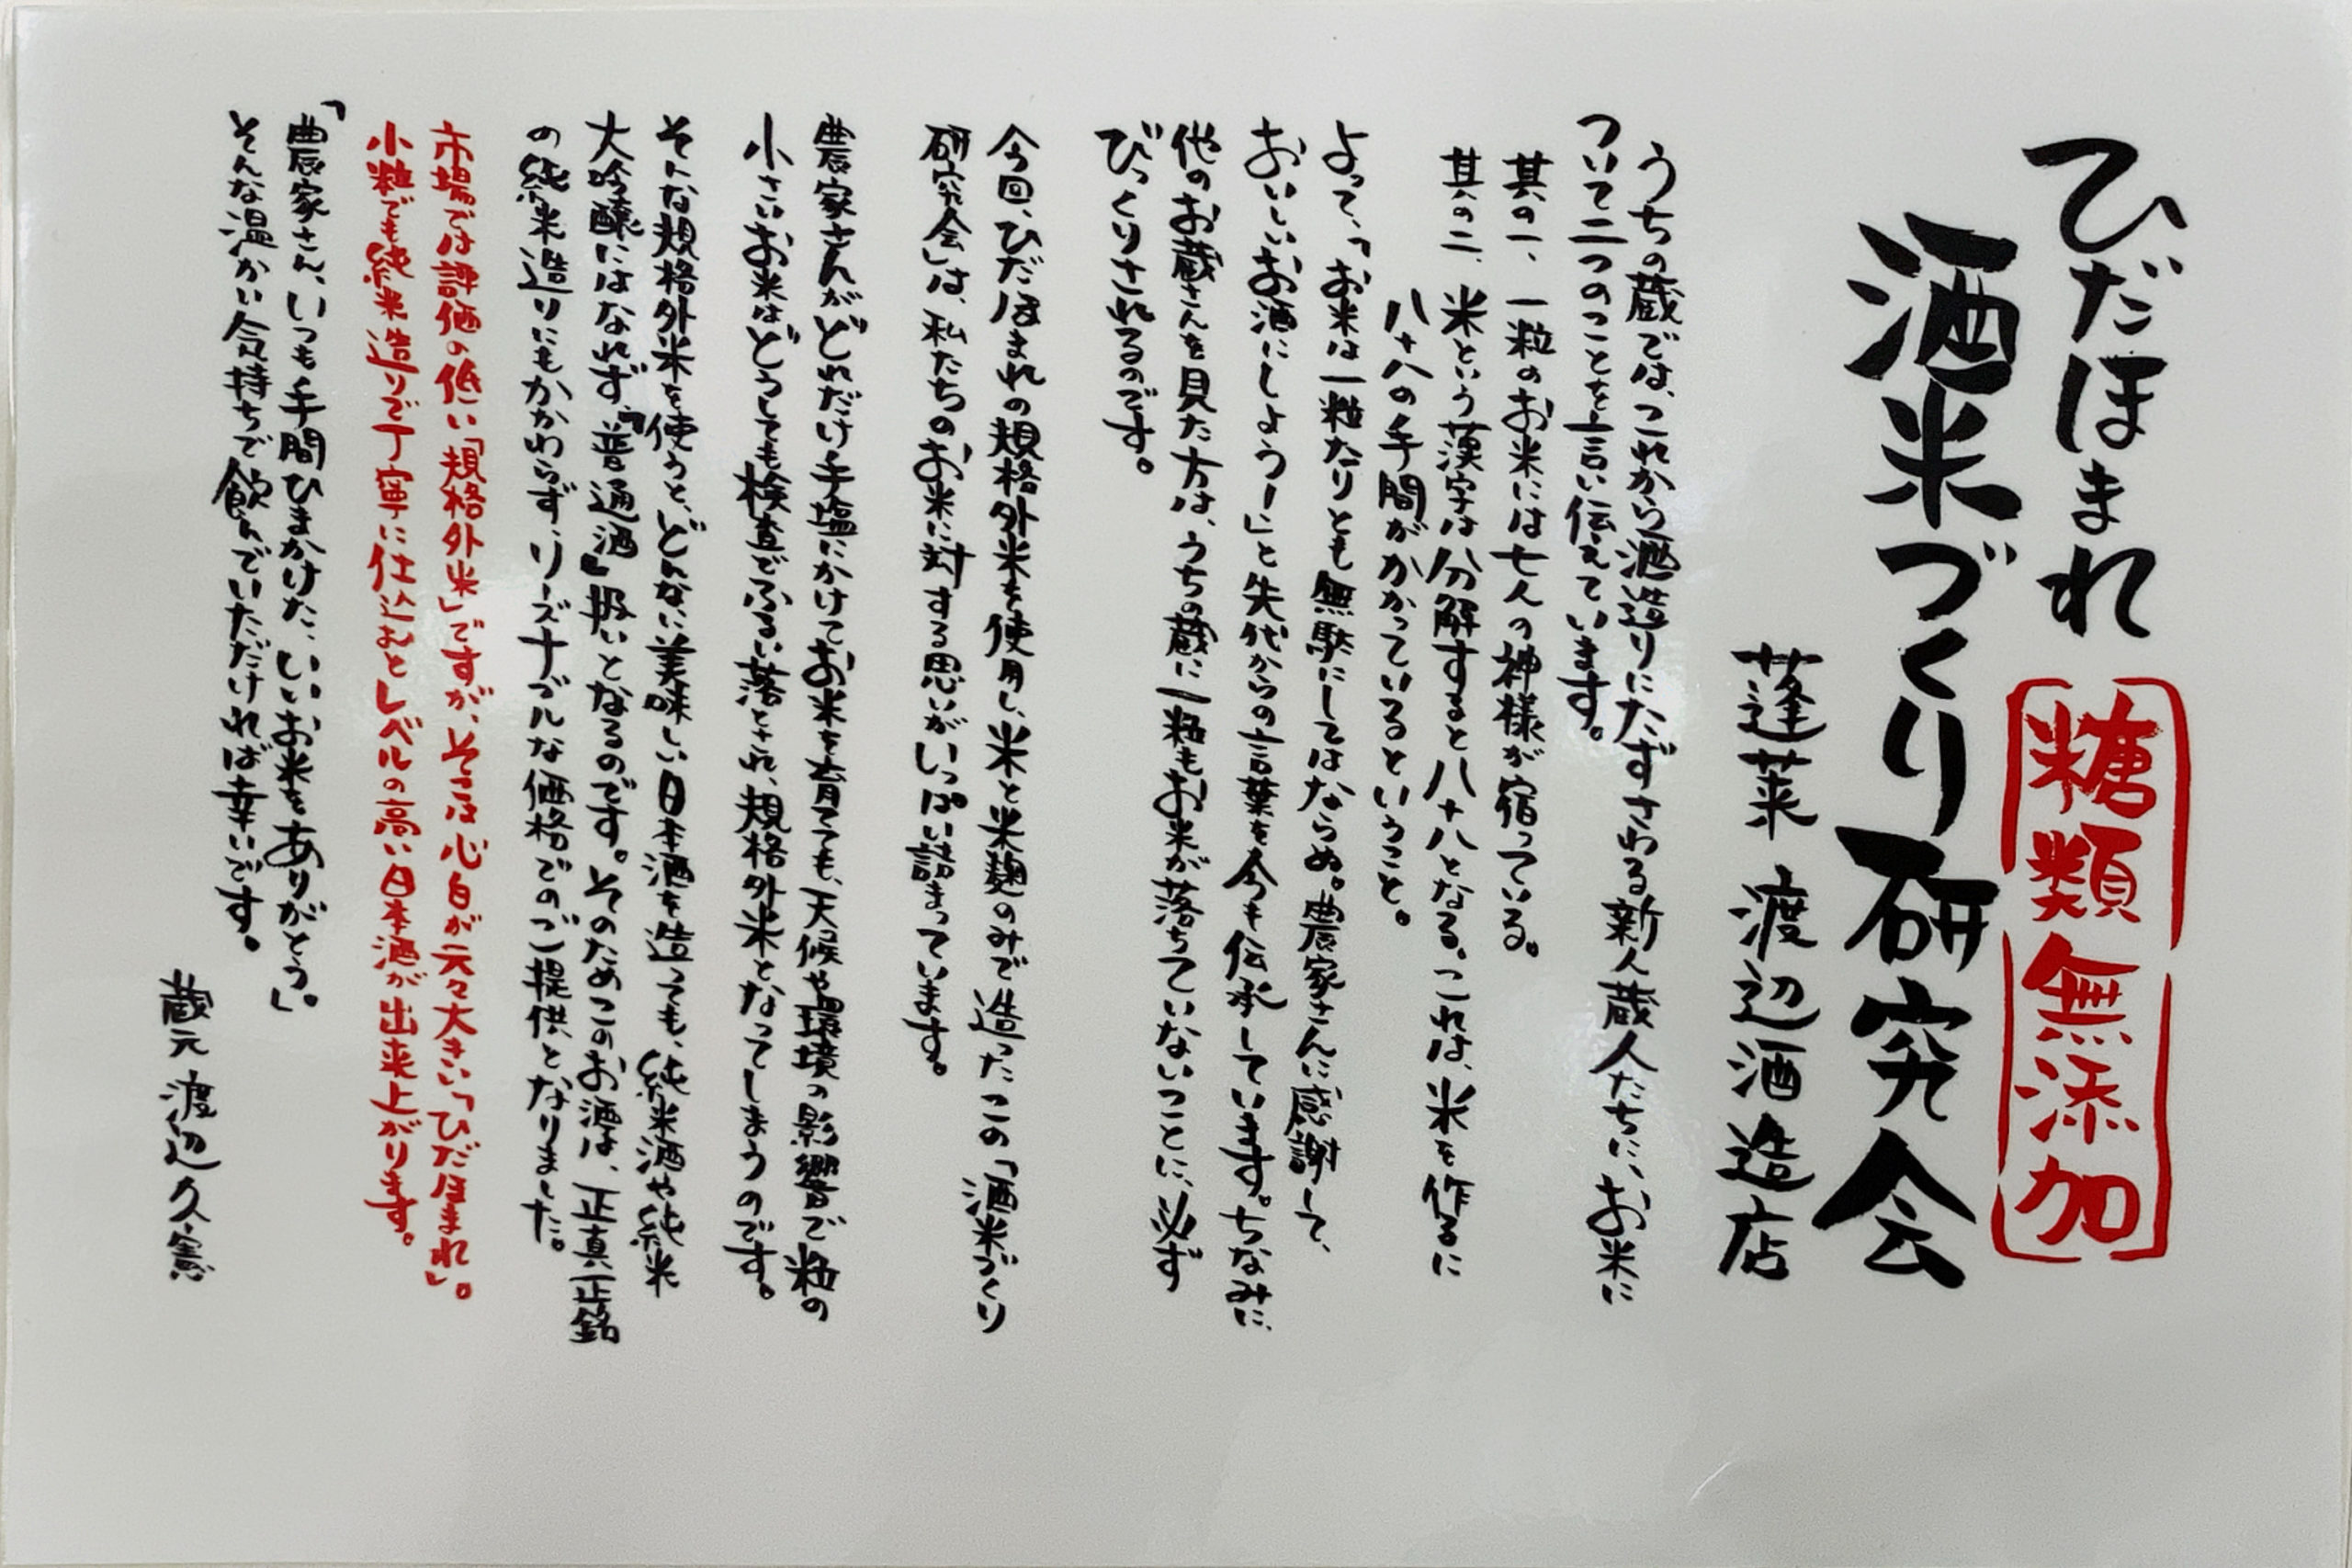 ひだほまれ
糖類無添加
酒米づくり研究会
蓬莱 渡辺酒造店
うちの蔵では、これから酒造りにたずさわる新人蔵人たちに、お米に
ついて二つのことを言い伝えています。
其の一、一粒のお米には七人の神様が宿っている。
其の二、米という漢字は分解すると八十八となる。これは、米を作るに
八十八の手間がかかっているということ。
よって、「お米は一粒たりとも無駄にしてはならぬ。農家さんに感謝して、
おいしいお酒にしよう!」と先代からの言葉を今も伝承しています。ちなみに
他のお蔵さんを見た方は、うちの蔵に一粒もお米が落ちていないことに、必ず
びっくりされるのです。
今回、ひだほまれの規格外米を使用し、米と米麹のみで造ったこの「酒米づくり
研究会」は、私たちのお米に対する思いがいっぱい詰まっています。
農家さんがどれだけ手塩にかけてお米を育てても、天候や環境の影響で粒の
小さいお米はどうしても検査でふるい落とされ、規格外米となってしまうのです。
そんな規格外米を使うと、どんなに美味しい日本酒を造っても、純米酒や純米
大吟醸にはなれず、「普通酒」扱いとなるのです。そのためこのお酒は、正真正銘
の純米造りにもかかわらず、リーズナブルな価格でのご提供となりました。
市場では評価の低い「規格外米」ですが、そこは心白が元々大きい「ひだほまれ」。
小粒でも純米造りで丁寧に仕込むとレベルの高い日本酒が出来上がります。
「農家さん、いつも手間ひまかけた、いいお米をありがとう」。
そんな温かい気持ちで飲んでいただければ幸いです。
蔵元 渡辺久憲